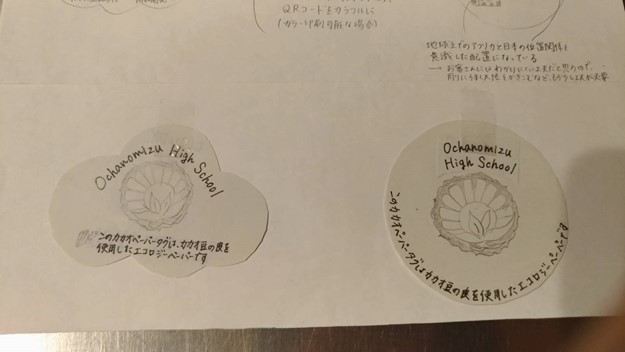 QRコードをカラフルに
(カラー印刷可能な場合)
地球上でのアフリカと日本の位置関係を
意識した配置になっている
Ochanomizu High School
このカカオペーパータグは、カカオ豆の皮を
使用したエコロジーペーパーです
Ochanomizu
High School
このカカオペーパータグはカカオ豆の皮を使用したエコロジーペーパーです